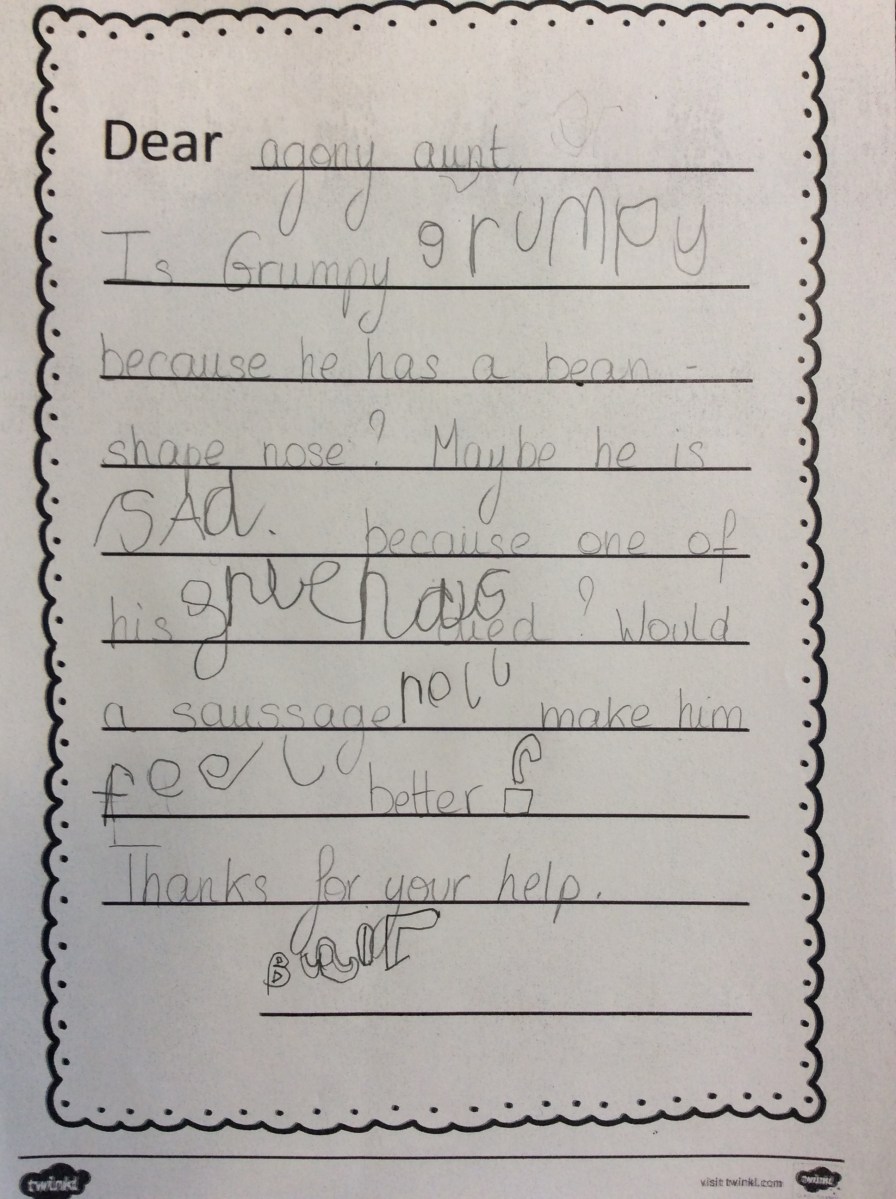 Dear agony aunt,
Is Grumpy grumpy
because he has a bean -
shape nose? Maybe he is
SAd. because one of
his died? Would
a saussage roll make him
feel better?
Thanks for your help.
twinkl
visit twinkl.com
twinkl